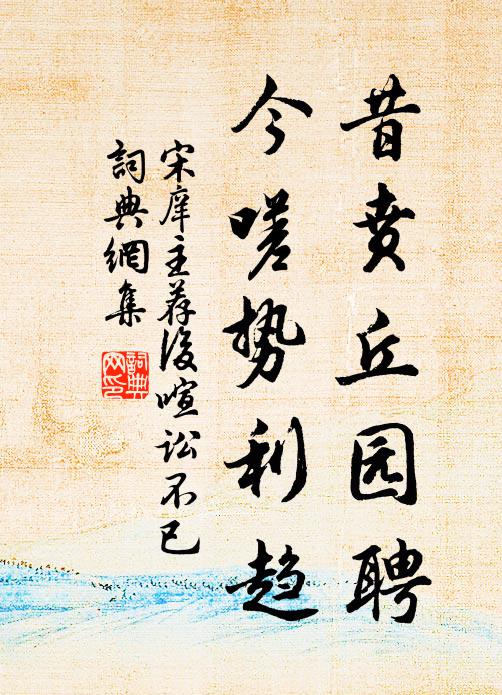 昔贲丘园聘
今嗟势利趋
宋庠主荐后喧讼不已
詞典網集
詞典网印